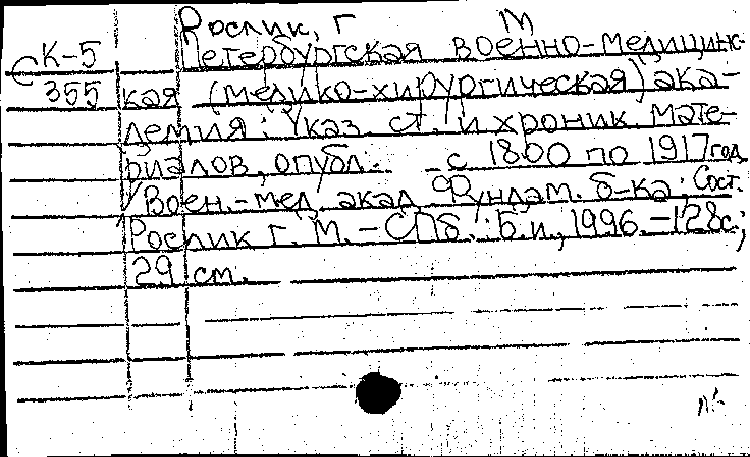 Рослик, Г М
К-5 Петербургская военно-медицинс-
С 355 кая (медико-хирургическая) ака-
демия: Указ. ст. и хроник. мате-
риалов, опубл. с 1800 по 1917 год
/ Воен.-мед. акад. Фундам. б-ка; Сост.
Рослик Г. М. - СПб.: Б.и., 1996. - 128с.;
29 см.